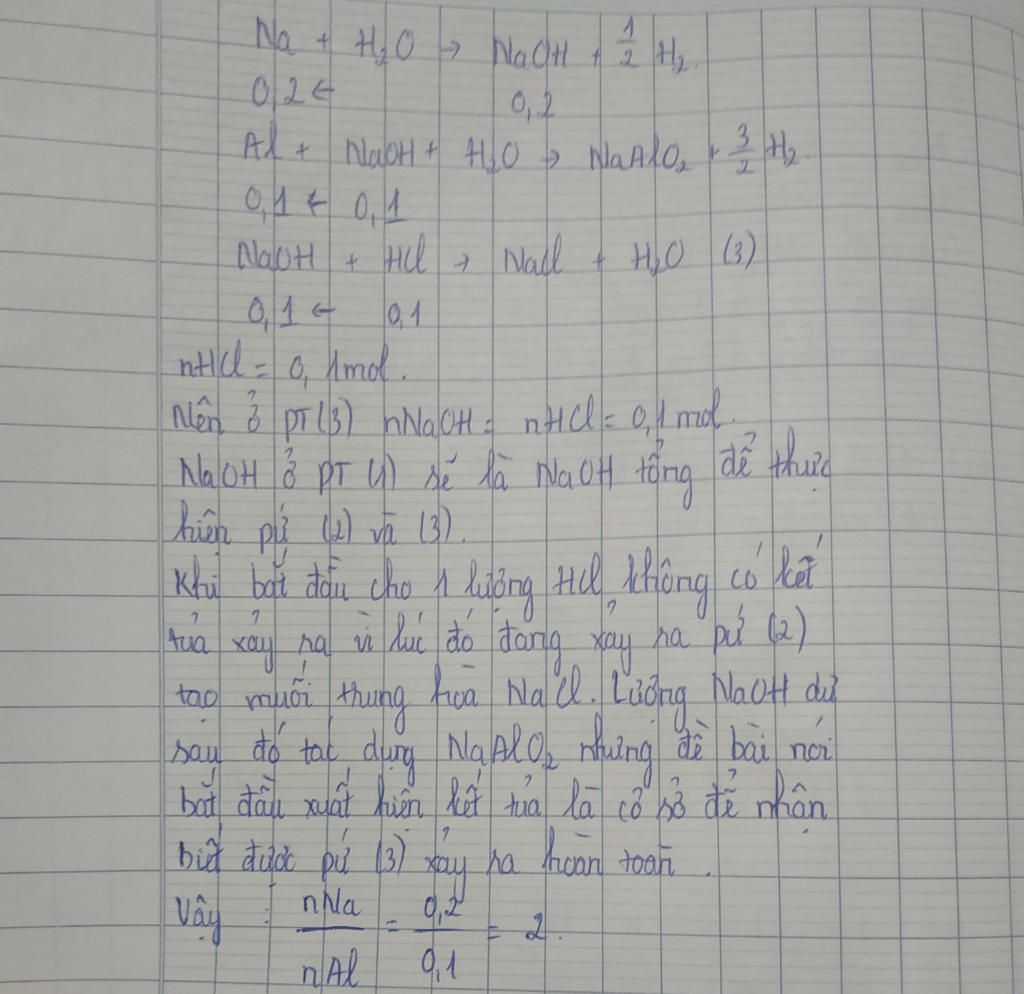 Na + H₂O → NaOH + 1/2 H₂.
0,2 ← 0,2
Al + NaOH + H₂O → NaAlO₂ + 3/2 H₂.
0,1 ← 0,1
NaOH + HCl → NaCl + H₂O (3)
0,1 ← 0,1
nHCl = 0,1mol.
Nên ở PT(3) nNaOH = nHCl = 0,1 mol.
NaOH ở PT (1) sẽ là NaOH tổng để thực
hiện pứ (2) và (3).
Khi bắt đầu cho 1 lượng HCl không có kết
tủa xảy ra vì lúc đó đang xảy ra pứ (2)
tạo muối trung hòa NaCl. Lượng NaOH dư
sau đó tác dụng NaAlO₂ nhưng đề bài nói
bắt đầu xuất hiện kết tủa là cơ sở để nhận
biết được pứ (3) xảy ra hoàn toàn.
Vậy : nNa/nAl = 0,2/0,1 = 2.